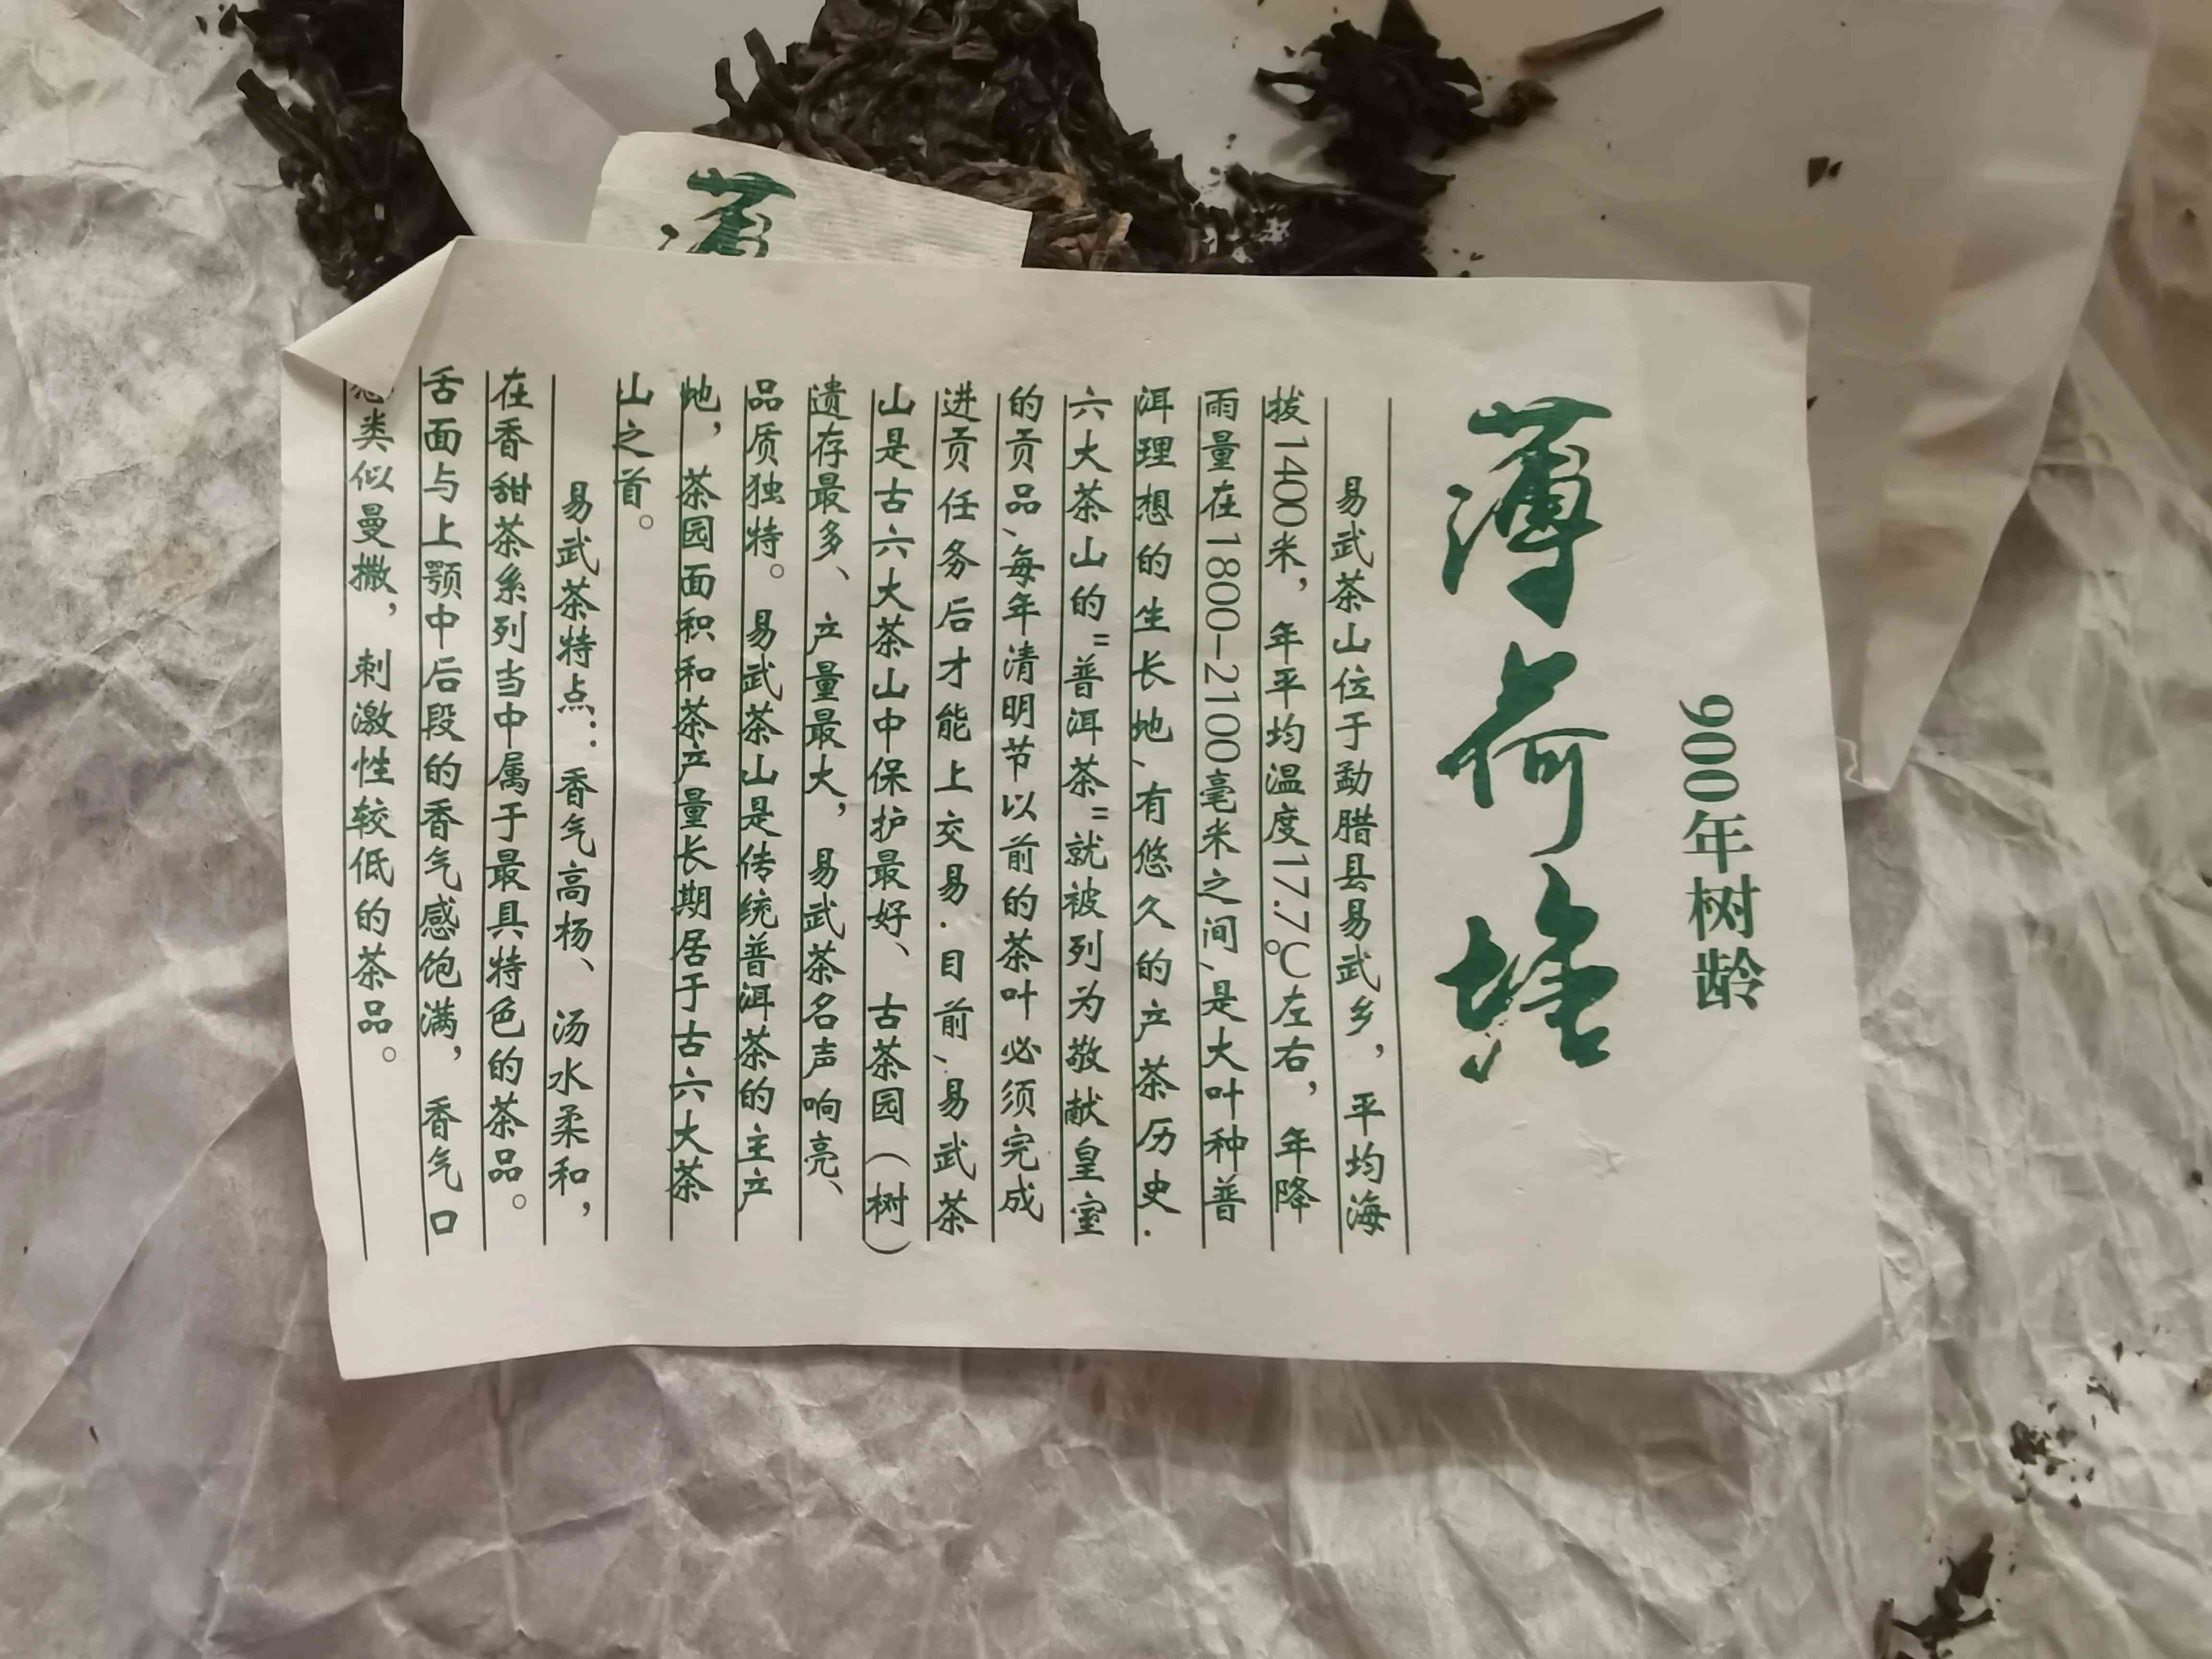 900年树龄
薄荷塘
易武茶山位于勐腊县易武乡，平均海
拔1400米，年平均温度17.7℃左右，年降
雨量在1800-2100毫米之间、是大叶种普
洱理想的生长地、有悠久的产茶历史.
六大茶山的"普洱茶"就被列为敬献皇室
的贡品、每年清明节以前的茶叶必须完成
进贡任务后才能上交易.目前、易武茶
山是古六大茶山中保护最好、古茶园(树)
遗存最多、产量最大，易武茶名声响亮、
品质独特。易武茶山是传统普洱茶的主产
地，茶园面积和茶产量长期居于古六大茶
山之首。
易武茶特点：香气高杨、汤水柔和，
在香甜茶系列当中属于最具特色的茶品。
舌面与上颚中后段的香气感饱满，香气口
感类似曼撒，刺激性较低的茶品。
薄